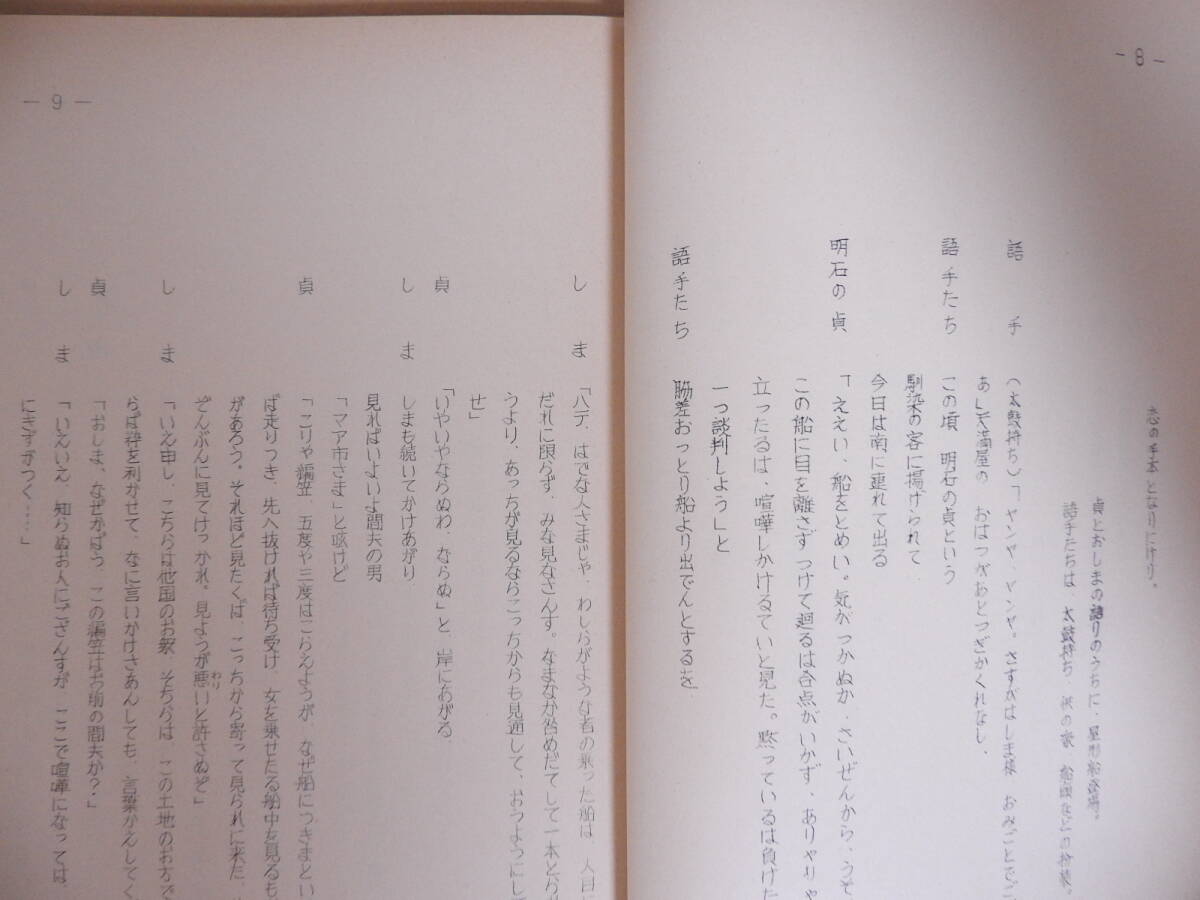 －8－
恋の手本となりにけり。
貞とおしまの語りのうちに、屋形船登場。
語手たちは、太鼓持ち、供の衆、船頭などの扮装。
語　手　（太鼓持ち）「ヤンヤ、ヤンヤ。さすがはしま様　おみごとでご
あし天満屋の　おはつがあとつぎかくれなし、
語手たち　この頃　明石の貞という
馴染の客に揚げられて
今日は南に連れて出る
明石の貞　「ええい、船をとめい。気がつかぬか、さいぜんから、うそ
この船に目を離さず　つけて廻るは合点がいかず、ありゃりゃ
立ったるは、喧嘩しかけるていと見た。黙っているは負けた
一つ談判しよう」と
語手たち　脇差おっとり船より出でんとするを
－9－
しま　「ハテ、はでな人さまじゃ、わしらがような者の乗った船は、人目に
だれに限らず、みな見なさんす。なまなか咎めだてして一本とられ
うより、あっちが見るならこっちからも見通して、おうようにし
せ」
貞　「いやいやならぬわ、ならぬ」と　岸にあがる
しま　しまも続いてかけあがり
見ればいよいよ間夫の男
「マア市さま」と呟けど
貞　「こりゃ編笠、五度や三度はこらえようが、なぜ船につきまとい
ば走りつき、先へ抜ければ待ち受け、女を乗せたる船中を見るも
があろう。それほど見たくば　こっちから寄って見られに来た、
ぞんぶんに見てけつかれ。見ようが悪いと許さぬぞ」
わり
しま　「いえ申し、こちらは他国のお衆　そちらは、この土地のお方で
らば粋を利かせて、なに言いかけさあんしても、言葉かえしてく
貞　「おしま、なぜかばう、この編笠はお前の間夫か？」
しま　「いえいえ、知らぬお人にござんすが　ここで喧嘩になっては、
にきずがつく……」